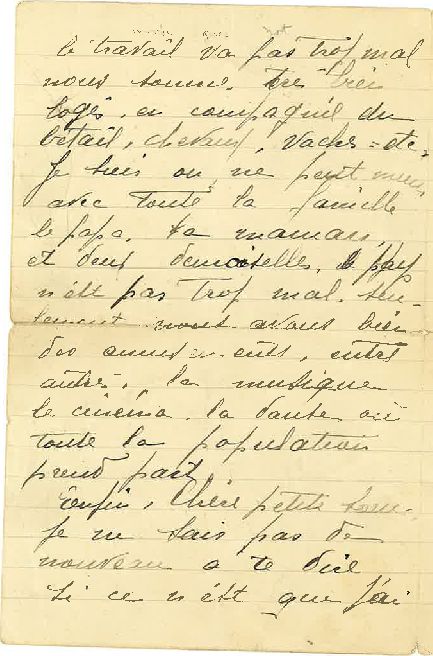 le travail va pas trop mal
nous somme. tres bien
logés, en compagnie du
bétail, chevaux, vaches = etc,
je suis on ne peut mieux
avec toute la famille
le papa, la maman,
et deux demoiselles, le pays
n'est pas trop mal. seu-
lement nous avons bien
des amusements, entre
autres, la musique
le cinéma. la danse où
toute la population
prend part,
enfin, chère petite sœur.
je ne sais pas de
nouveau a te dire
si ce n'ést que j'ai